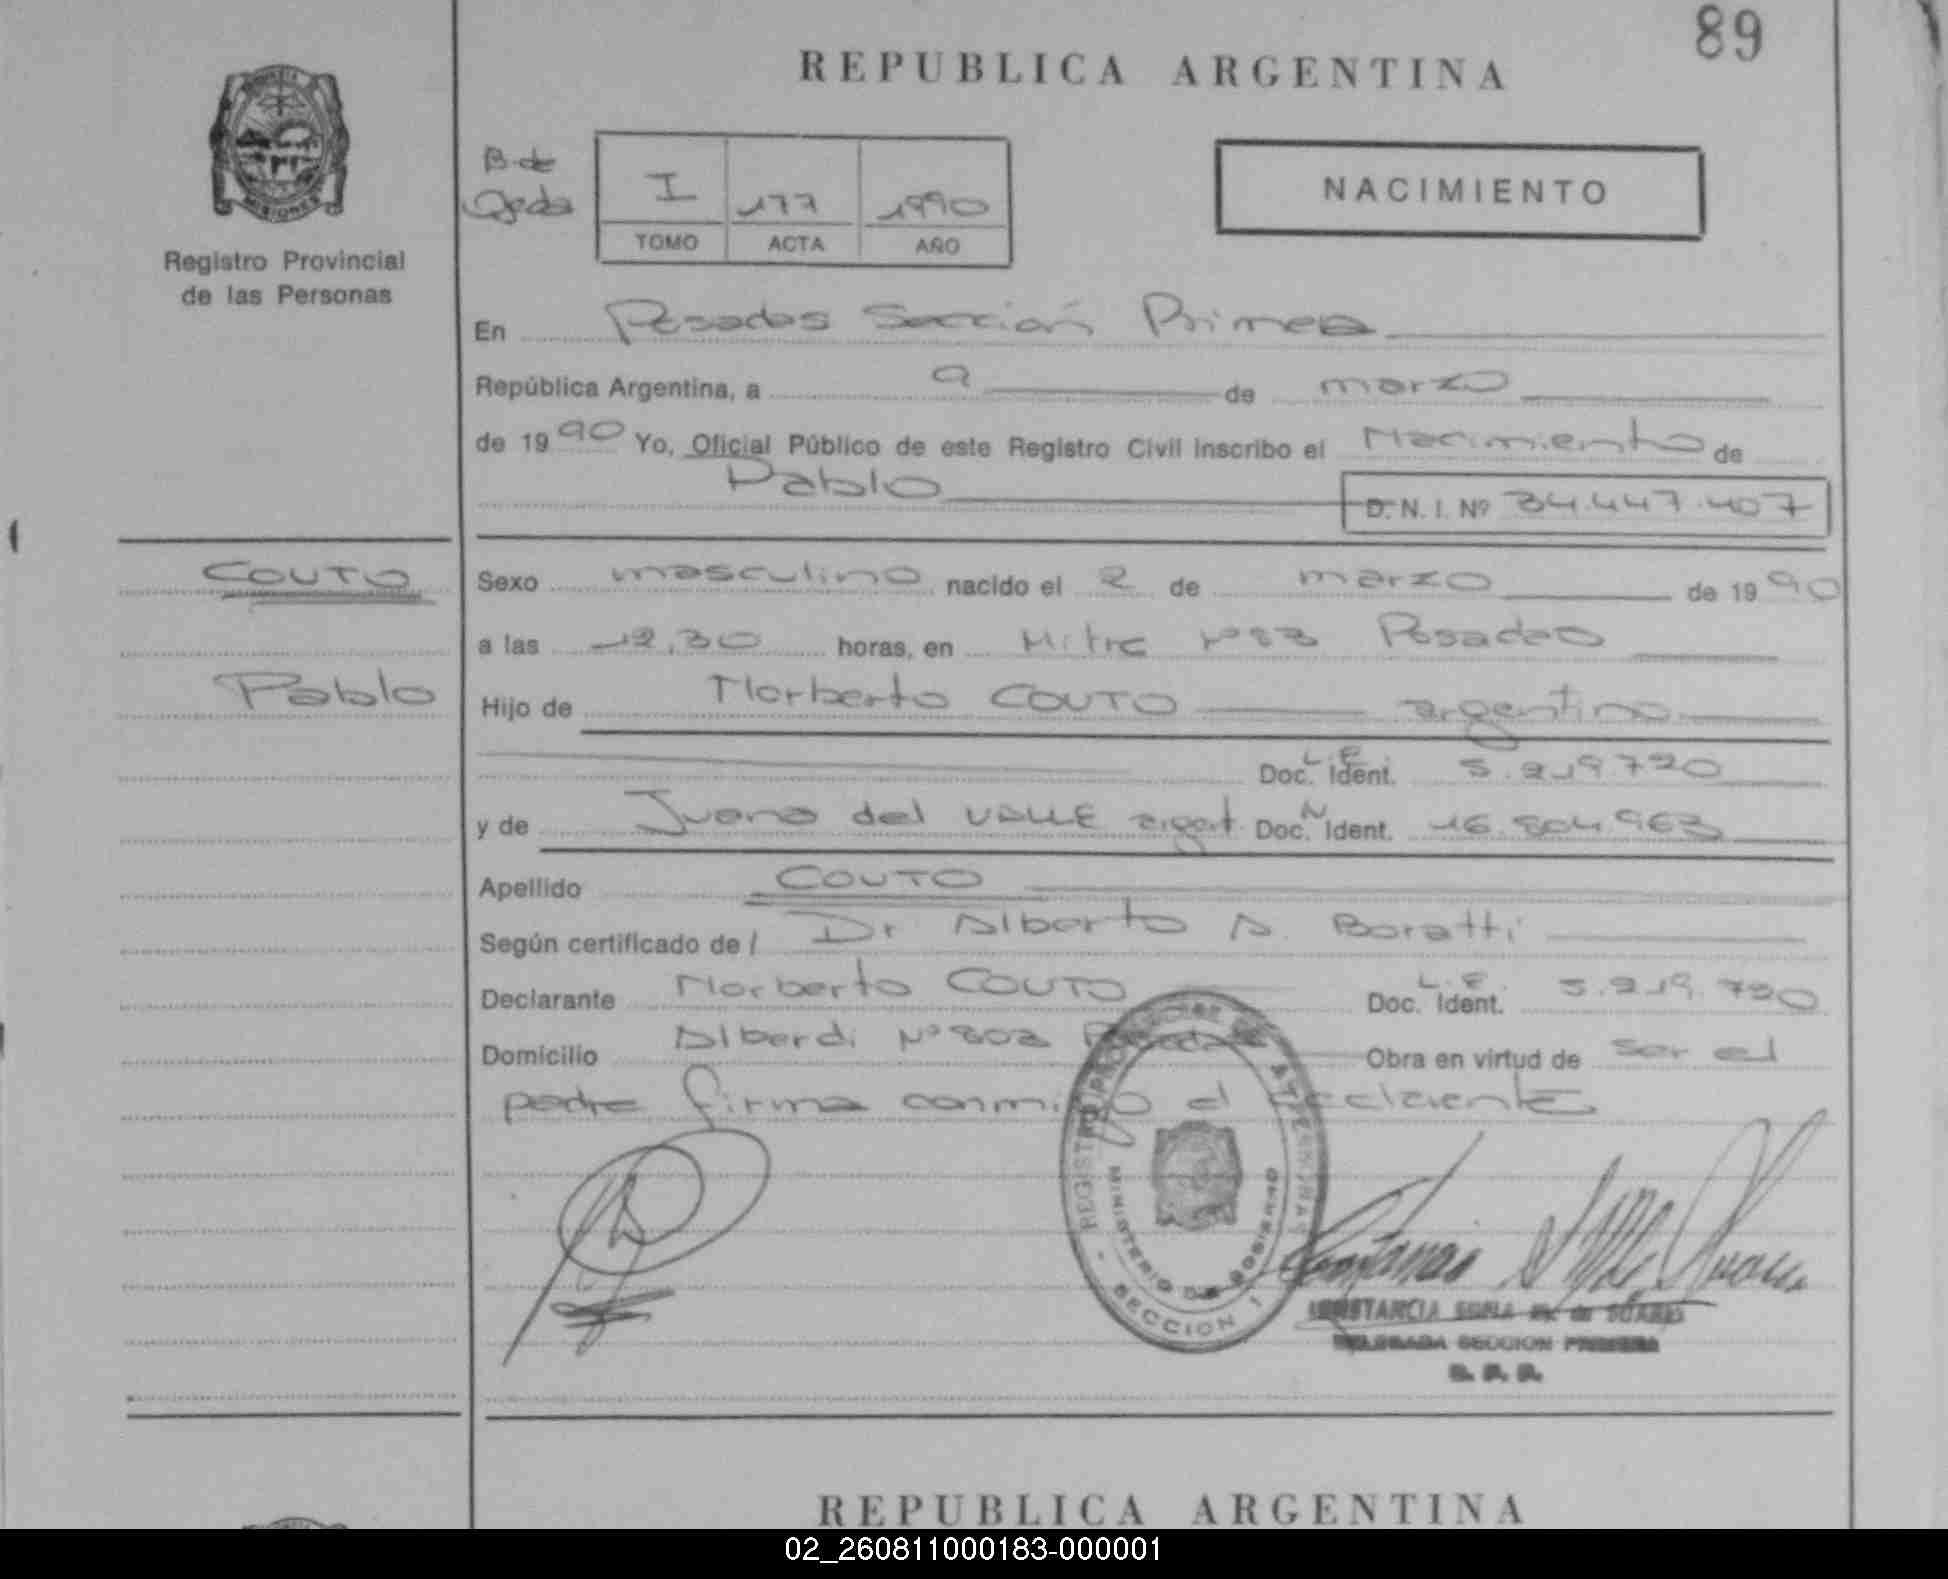 89
REPUBLICA ARGENTINA
MISIONES
Registro Provincial
de las Personas
B. de
Ojeda
I 177 1990
TOMO ACTA AÑO
NACIMIENTO
En Posadas Sección Primera
República Argentina, a 9 de marzo
de 1990 Yo, Oficial Público de este Registro Civil inscribo el Nacimiento de
Pablo
D. N. I. Nº 34.447.407
COUTO
Sexo masculino nacido el 2 de marzo de 1990
a las 12,30 horas, en Mitre Nº Posadas
Pablo
Hijo de Norberto COUTO argentino
L.E.
Doc. Ident. 5.219.720
y de Juana del VALLE argent. Doc. N. Ident. 16.804.963
Apellido COUTO
Según certificado de / Dr Alberto A. Boratti
Declarante Norberto COUTO Doc. L.E. Ident. 5.219.720
Domicilio Alberdi Nº 803 Posadas Obra en virtud de ser el
padre firma conmigo el declarante
REGISTRO
MINISTERIO DE GOBIERNO
SECCION 1
DELEGADA SECCION PRIMERA
REPUBLICA ARGENTINA
02_260811000183-000001